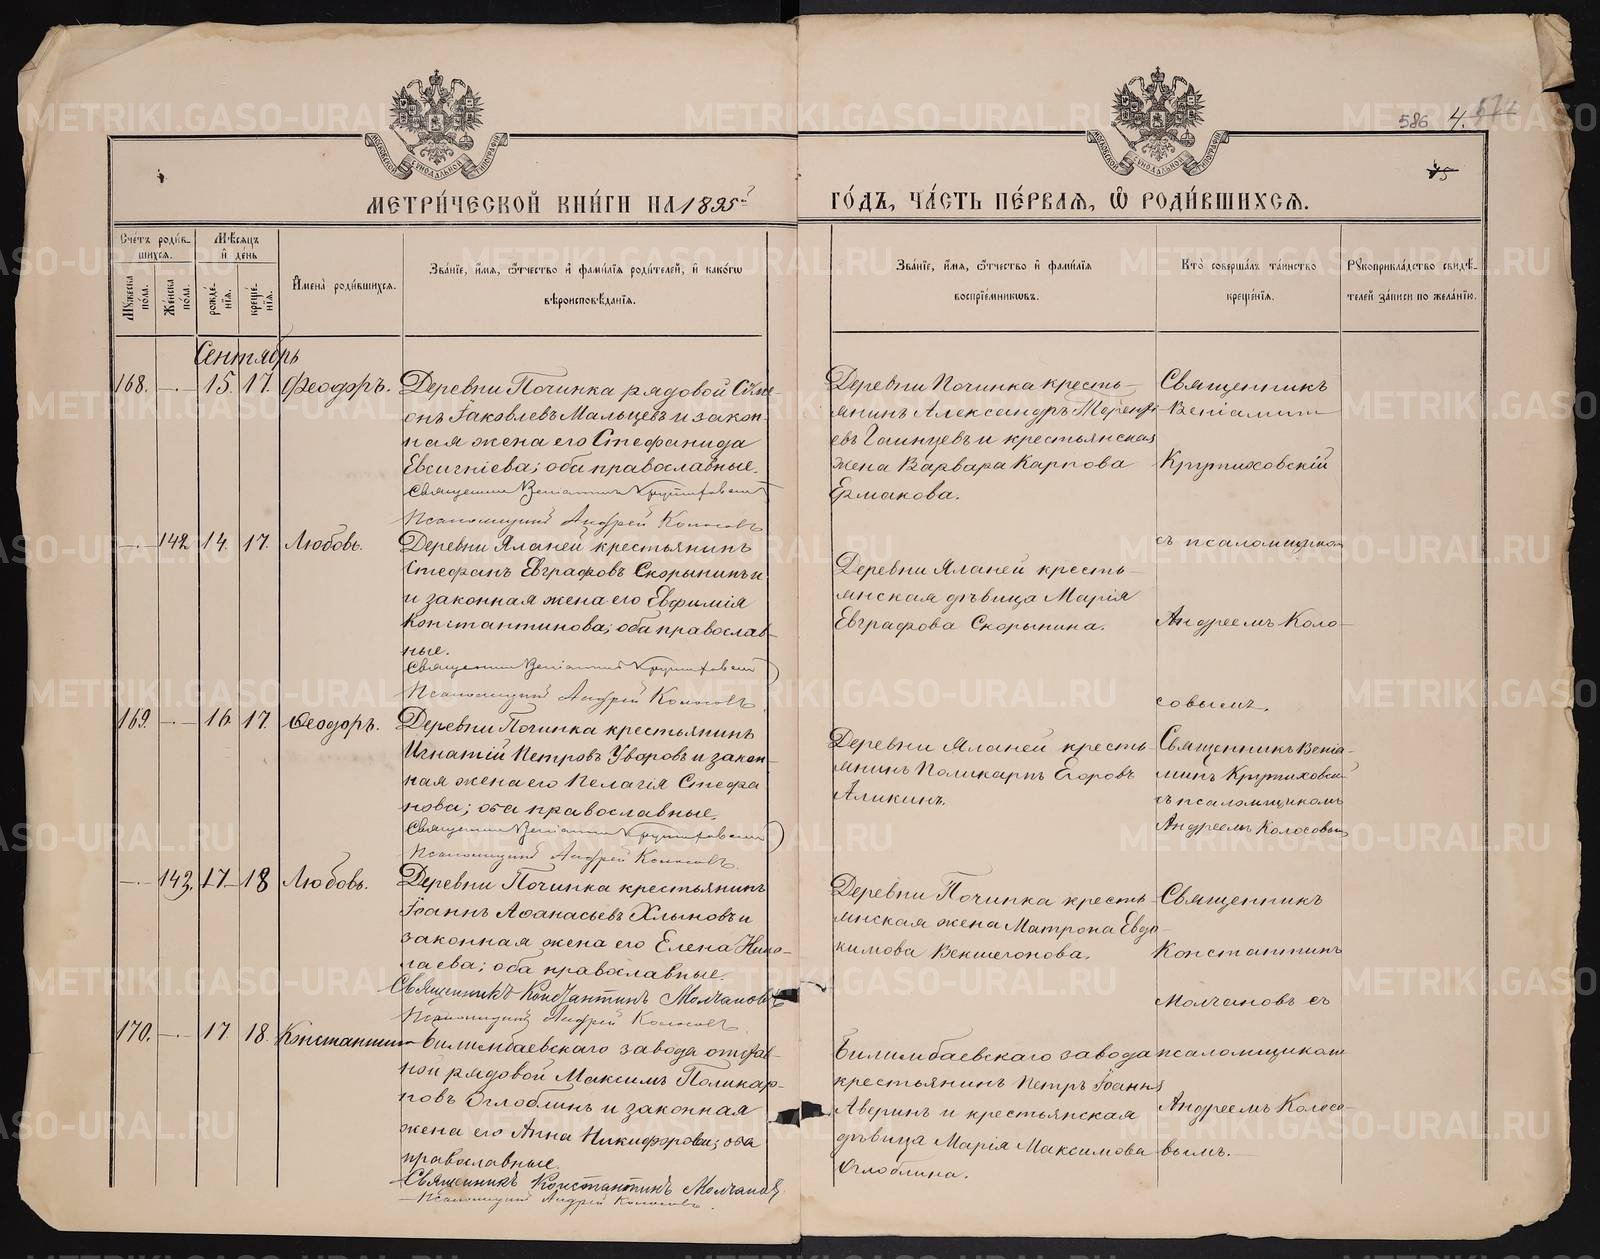 586 4.
75
МОСКОВСКОЙ СѴНОДАЛЬНОЙ ТИПОГРАФІИ
МОСКОВСКОЙ СѴНОДАЛЬНОЙ ТИПОГРАФІИ
МЕТРИ́ЧЕСКОЙ КНИ́ГИ НА 1895й ГО́ДЪ, ЧА́СТЬ ПЕ́РВАѦ, Ѽ РОДИ́ВШИХСѦ.
Сче́тъ роди́в-
шихсѧ.
Мꙋ́жеска по́ла.
Же́нска по́ла.
Мѣ́сѧцъ
и҆ де́нь
рожде́-
нїѧ.
креще́-
нїѧ.
И҆мена̀ роди́вшихсѧ.
Зва́нїе, и҆́мѧ, ѻ҆́тчество и҆ фами́лїѧ роди́телей, и҆ како́гѡ
вѣроисповѣ́данїѧ.
Зва́нїе, и҆́мѧ, ѻ҆́тчество и҆ фами́лїѧ
воспрїе́мникѡвъ.
Кто̀ соверша́лъ та́инство
креще́нїѧ.
Рꙋкоприкла́дство свидѣ́-
телей за́писи по жела́нїю.
Сентябрь
168. —.— 15. 17. Феодоръ.
Деревни Починка рядовой Симе-
онъ Іаковлевъ Мальцевъ и закон-
ная жена его Стефанида
Евсигніева; оба православные.
Священникъ Веніаминъ Крутиховскій
Псаломщикъ Андрей Колосовъ
Деревни Починка кресть-
янинъ Александръ
евъ и крестьянская
жена Варвара Карпова
Ермакова.
Священникъ
Веніаминъ
Крутиховскій
съ псаломщикомъ
Андреемъ Коло-
совымъ.
—.— 142 14. 17. Любовь.
Деревни Яланей крестьянинъ
Стефанъ Евграфовъ Скорынинъ и
и законная жена его Евфимія
Константинова; оба православ-
ные.
Священникъ Веніаминъ Крутиховскій
Псаломщикъ Андрей Колосовъ
Деревни Яланей кресть-
янская дѣвица Марія
Евграфова Скорынина.
169. —.— 16. 17. Ѳеодоръ.
Деревни Починка крестьянинъ
Игнатій Петровъ Уваровъ и закон-
ная жена его Пелагія Стефа
нова; оба православные.
Священникъ Веніаминъ Крутиховскій
Псаломщикъ Андрей Колосовъ.
Деревни Яланей кресть-
янинъ Поликарпъ Егоровъ
Аликинъ.
Священникъ Веніа-
минъ Крутиховскій
съ псаломщикомъ
Андреемъ Колосовымъ
—.— 143. 17. 18 Любовь.
Деревни Починка крестьянинъ
Іоаннъ Аѳанасьевъ Хлыновъ и
законная жена его Елена Нико-
лаева; оба православные.
Священникъ Константинъ Молчановъ
Псаломщикъ Андрей Колосовъ.
Деревни Починка кресть-
янская жена Матрона Евдо-
кимова Векшегонова.
Священникъ
Константинъ
Молчановъ съ
псаломщикомъ
Андреемъ Колосо-
вымъ.
170. —.— 17. 18. Константинъ
Билимбаевскаго завода отстав-
ной рядовой Максимъ Поликар-
повъ Оглоблинъ и законная
жена его Анна Никифорова; оба
православные.
Священникъ Константинъ Молчановъ
Псаломщикъ Андрей Колосовъ.
Билимбаевскаго завода
крестьянинъ Петръ Іоанновъ
Аверинъ и крестьянская
дѣвица Марія Максимова
Оглоблина.
METRIKI.GASO-URAL.RU